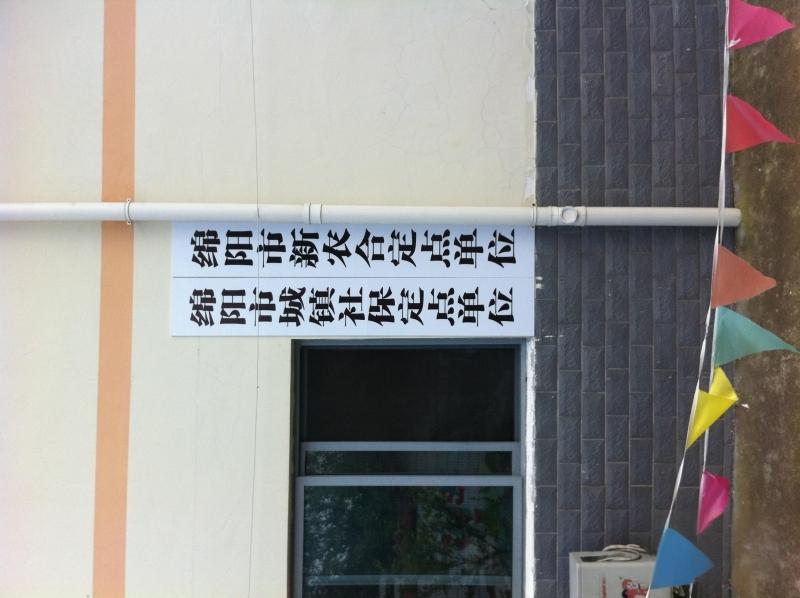 绵阳市新农合定点单位
绵阳市城镇社保定点单位